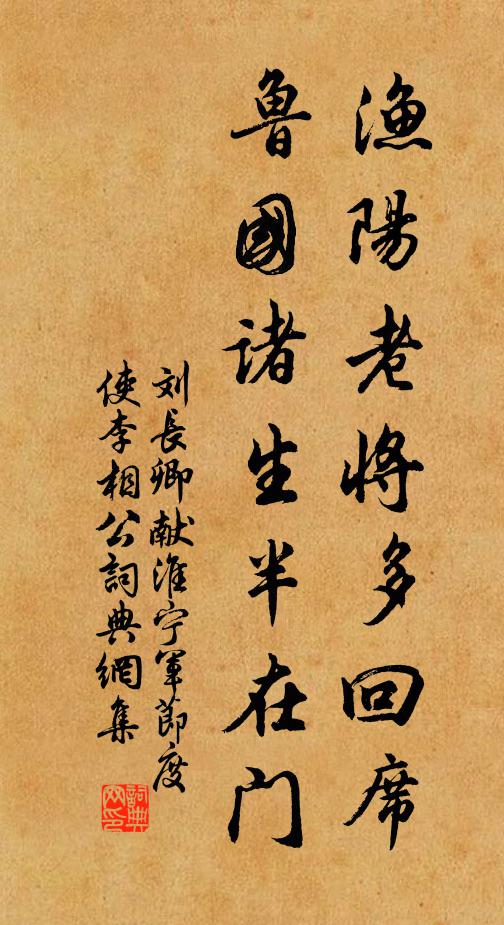 漁陽老將多回席
魯國諸生半在門
刘長卿献淮宁軍節度
使李相公詞典網集
詞典网印